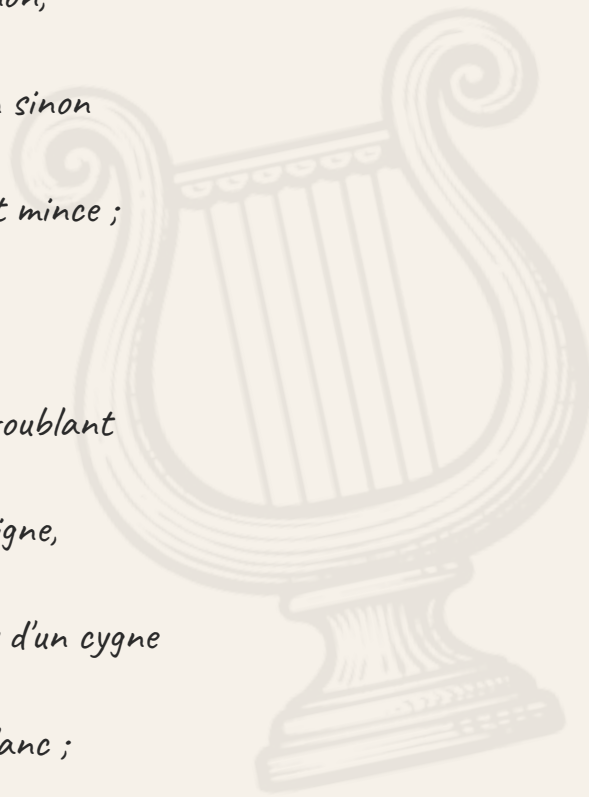 on,
sinon
t mince ;
oublant
igne,
d'un cygne
anc ;